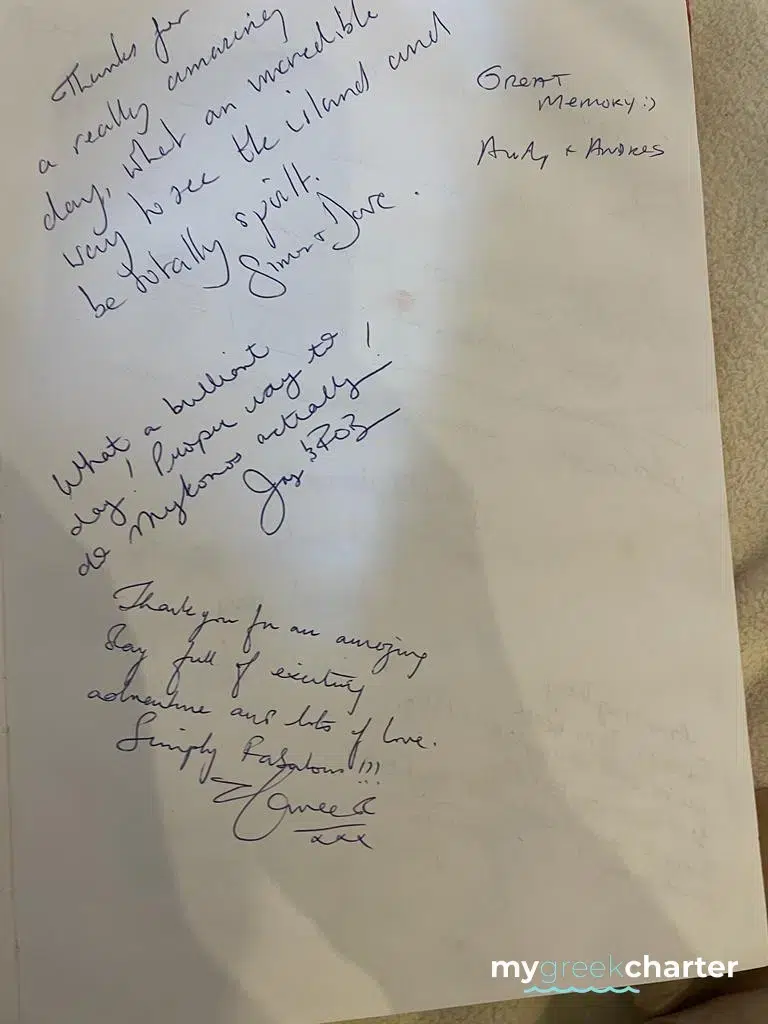 Thanks for
a really amazing
day, what an incredible
way to see the island and
be totally spoilt.
Simon + Dave.
GREAT
MEMORY :)
Andy + Andres
What a brilliant
day! Proper way to
do Mykonos actually!
Jay & ROB
Thank you for an amazing
day full of exciting
adventure and lots of love.
Simply Fabulous!!!
xxx
mygreekcharter